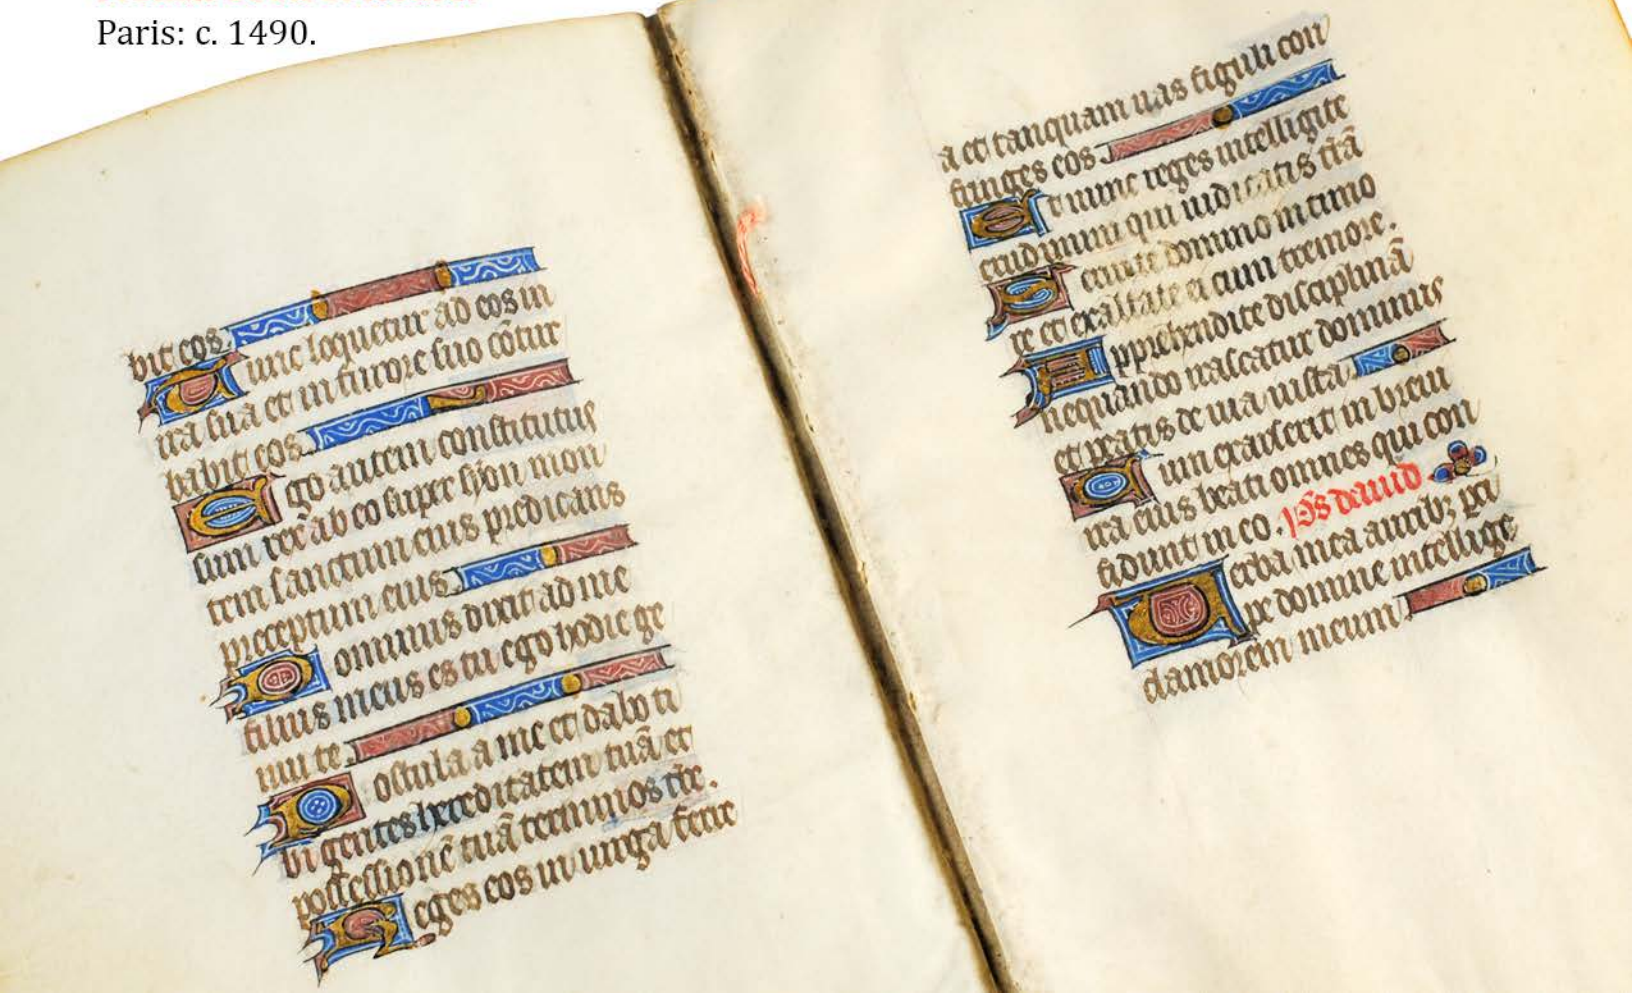 Paris: c. 1490.
bit eos.
Tunc loquetur ad eos in
ira sua et in furore suo cōtur
babit eos.
Ego autem constitutus
sum rex ab eo super syon mon
tem sanctum eius predicans
preceptum eius.
Dominus dixit ad me
filius meus es tu ego hodie ge
nui te.
Postula a me et dabo ti
bi gentes hereditatem tuā et
possessionē tuā terminos tr̄e.
Reges eos in uirga ferre
a et tanquam uas figuli con
fringes eos.
Et nunc reges intelligite
erudimini qui iudicatis trā
Seruite domino in timo
re et exultate ei cum tremore.
Apprehendite disciplinā
nequando irascatur dominus
et peatis de uia iusta
Cum exarserit in breui
ira eius beati omnes qui con
fidunt in eo. p̄s dauid
Verba mea auribꝫ pci
pe domine intellige
clamorem meum